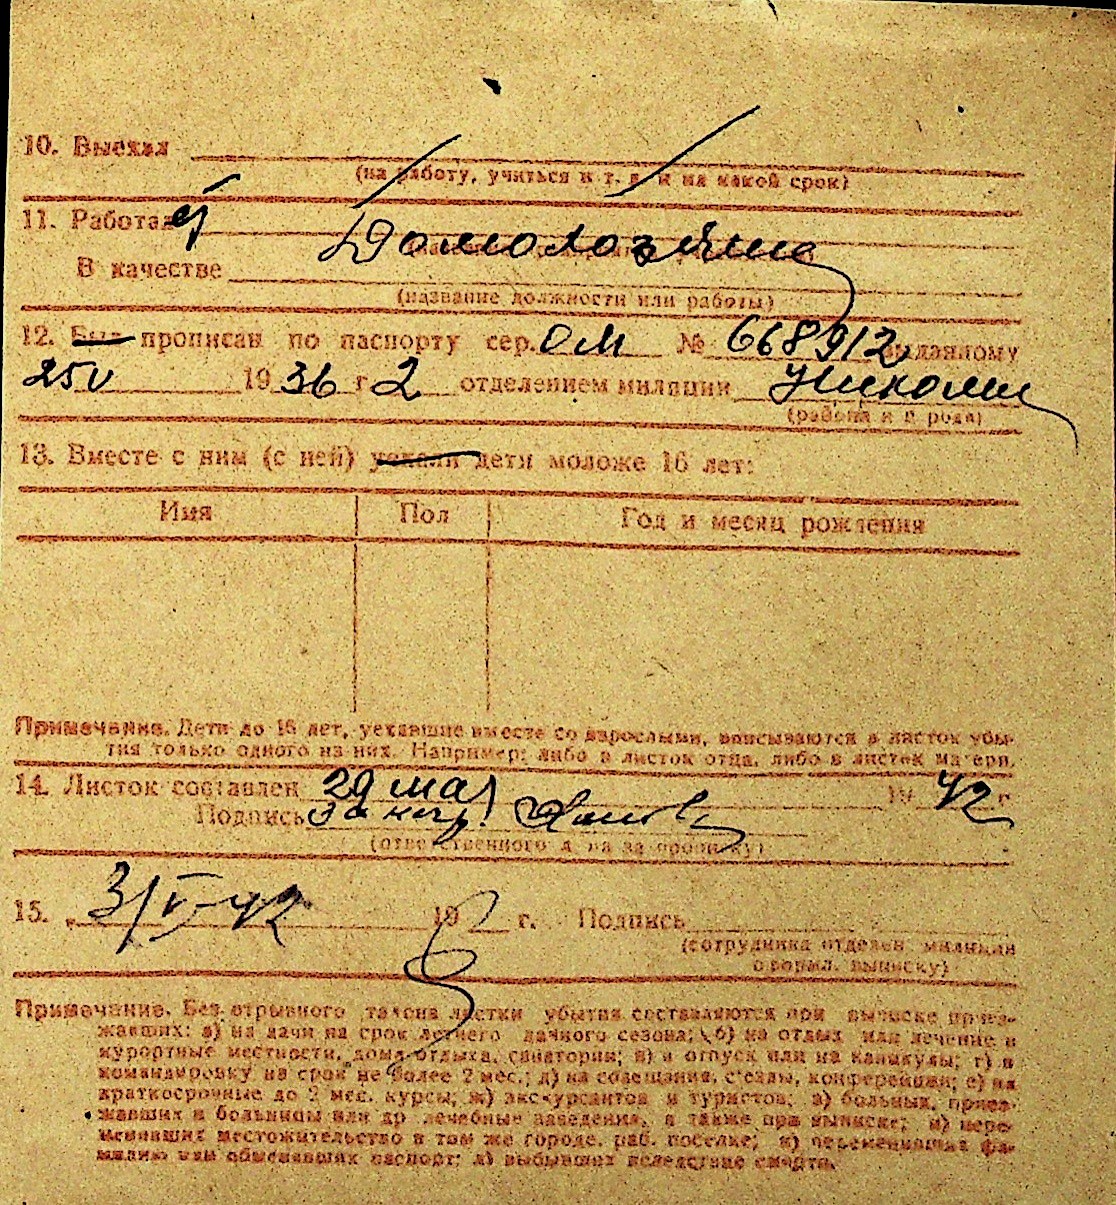 10. Выехал
(на работу, учиться и т. д. и на какой срок)
11. Работал
Домохозяйка
В качестве
(название должности или работы)
12. Был прописан по паспорту сер. ОМ № 668912 выданному
25 V 1936 г 2 отделением милиции
(района и города)
13. Вместе с ним (с ней) уехали дети моложе 16 лет:
Имя Пол Год и месяц рождения
Примечание. Дети до 16 лет, уехавшие вместе со взрослыми, вписываются в листок убы-
тия только одного из них. Например: либо в листок отца, либо в листок матери.
14. Листок составлен 29 мая 1942 г
Подпись
(ответственного л-ца за прописку)
15. 3/VI-42 19 г. Подпись
(сотрудника отделен. милиции
оформл. выписку)
Примечание. Без отрывного талона листки убытия составляются при выписке приез-
жавших: а) на дачи на срок летнего дачного сезона; б) на отдых или лечение в
курортные местности, дома отдыха, санатории; в) в отпуск или на каникулы; г) в
командировку на срок не более 2 мес.; д) на совещания, съезды, конференции; е) на
краткосрочные до 2 мес. курсы; ж) экскурсантов и туристов; з) больных, приез-
жавших в больницы или др лечебные заведения, а также при выписке; и) пере-
менивших местожительство в том же городе, раб. поселке; к) переменивших фа-
милию или обменявших паспорт; л) выбывших вследствие смерти.